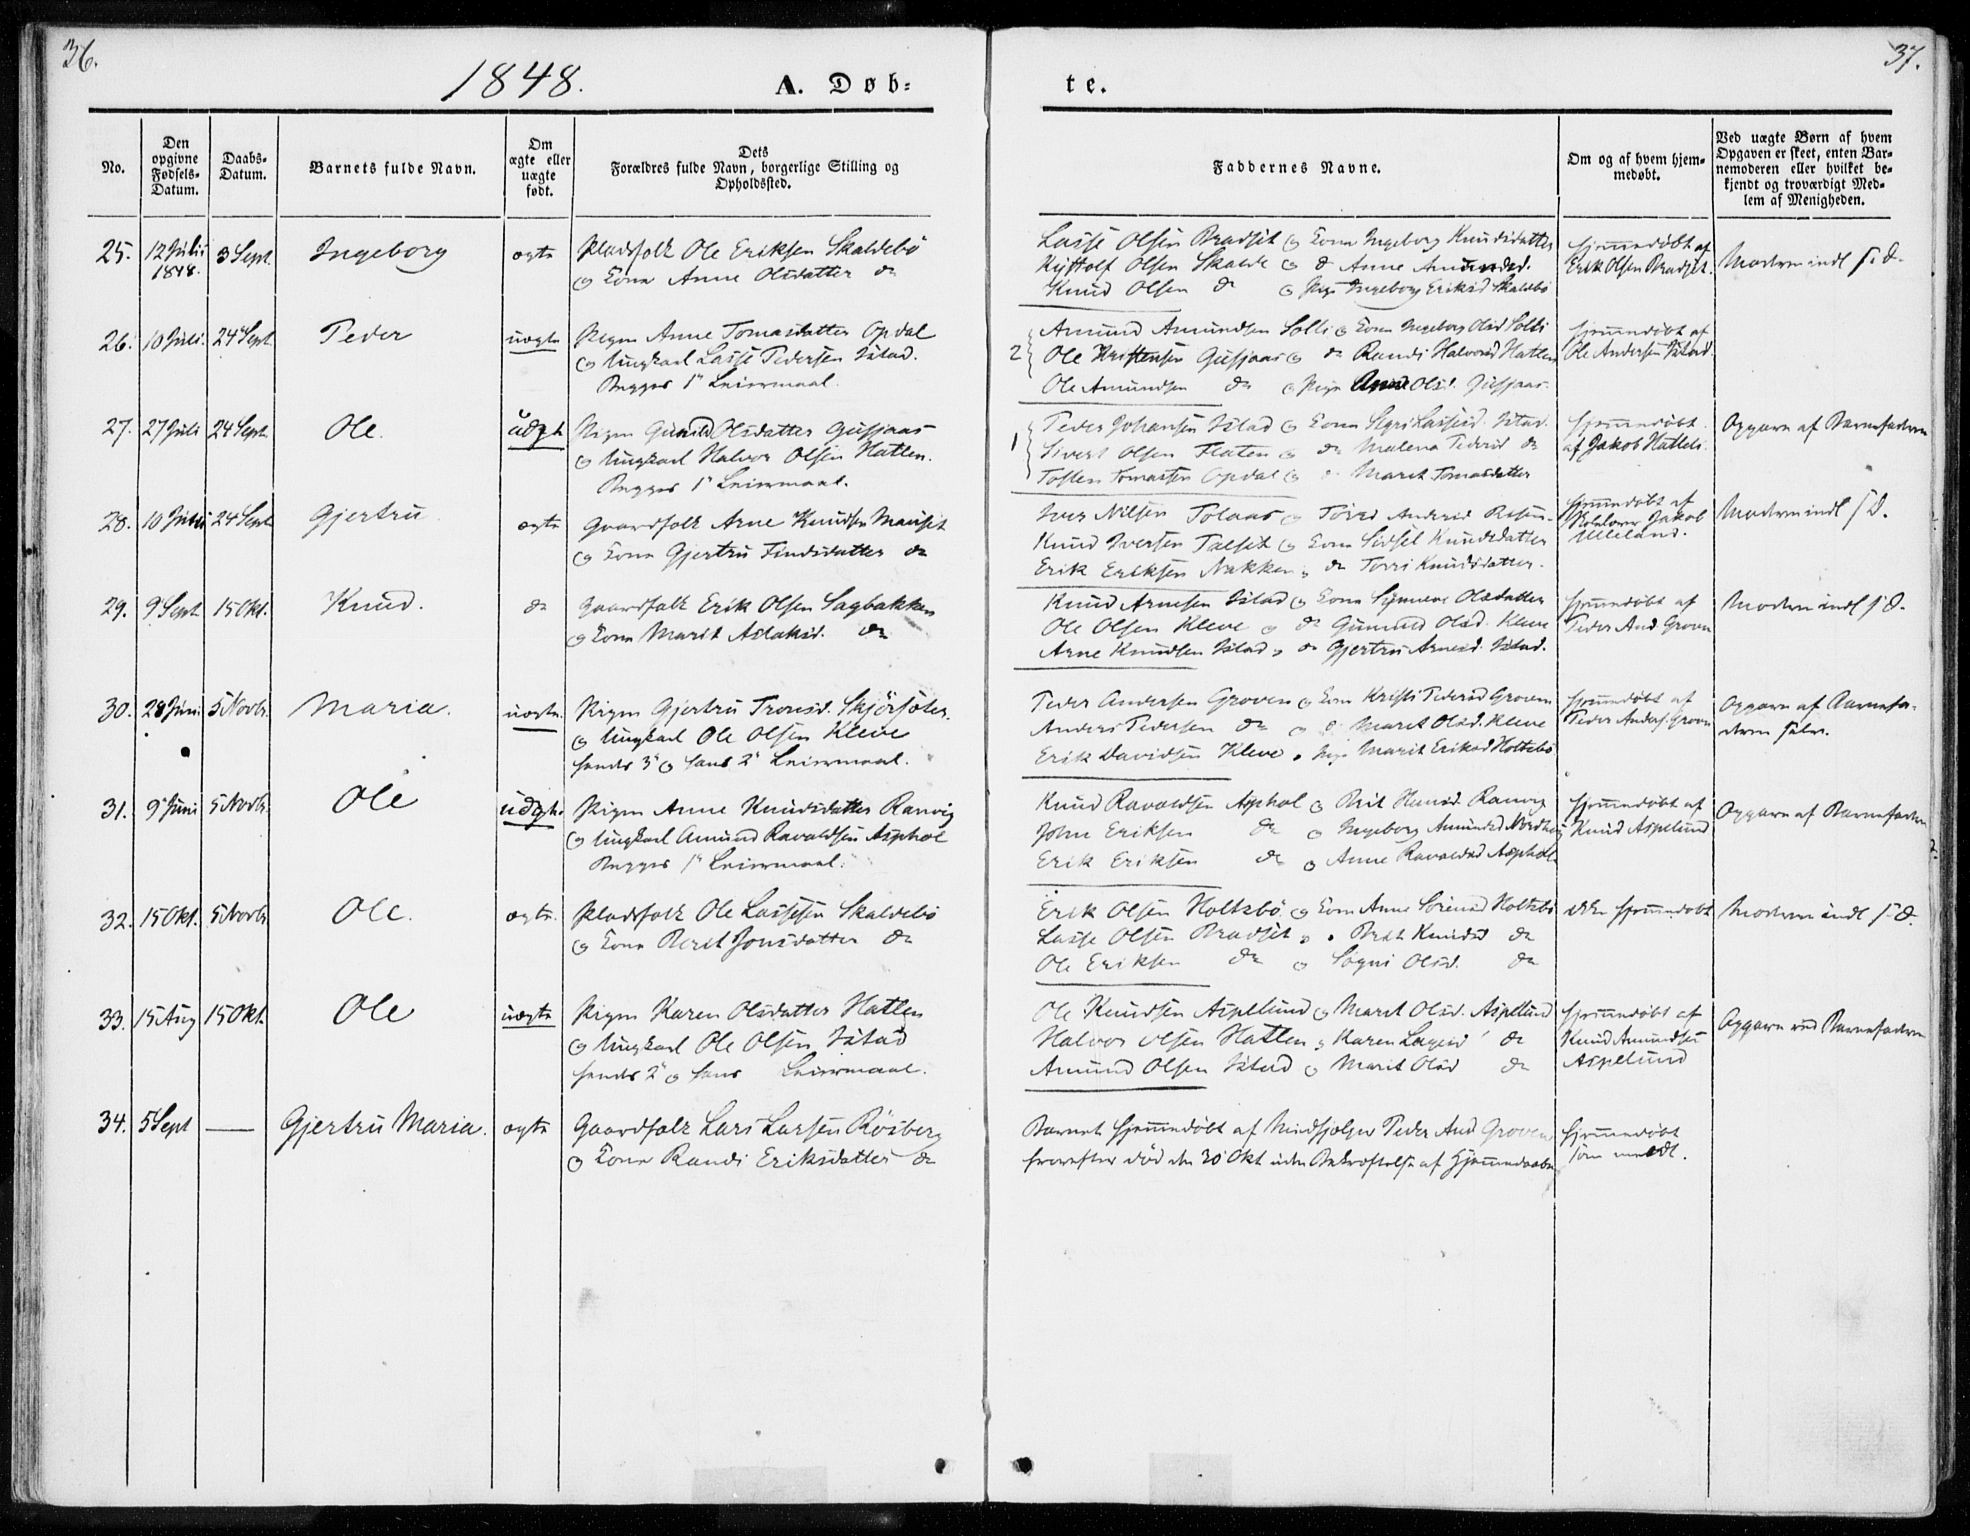 36.
1848.
A. Døb-
te.
37.
No.
Den
opgivne
Fødsels-
Datum.
Daabs-
Datum.
Barnets fulde Navn.
Om
ægte eller
uægte
født.
Dets
Forældres fulde Navn, borgerlige Stilling og
Opholdssted.
Faddernes Navne.
Om og af hvem hjem-
medøbt.
Ved uægte Børn af hvem
Opgaven er skeet, enten Bar-
nemoderen eller hvilket be-
kjendt og troværdigt Med-
lem af Menigheden.
25. 12 Juli 3 Sept Ingeborg ægte Pladsfolk Ole Eriksen Skaldebö
1848.
og Kone Anne Olsdatter do
Lasse Olsen Bradsit og Kone Ingeborg Knudsdatter
Olsen Skalde og do Anne
Knud Olsen do og Pige Ingeborg Eriksd Skaldebö
hjemmedöbt af
Erik Olsen Bradsit.
Moderen indl
26. 10 Juli 24 Sept Peder uægte Pigen Anne Tomasdatter Opdal
og Ungkarl Lasse Pedersen Istad.
Begges 1ste Leiermaal.
2 Amund Amundsen Solli og Kone Ingeborg Olsd Solli
Ole Kristensen Gussiaas og do Randi Halvorsd Hatlen
Ole Amundsen do og Pige Olsd. Gussiaas
hjemmedöbt af
Ole Andersen Istad.
27. 27 Juli 24 Sept Ole. uægte Pigen Gunild Olsdatter Gussiaas
og Ungkarl Halvor Olsen Hatlen.
Begges 1ste Leiermaal.
1 Peder Johansen Istad og Kone Lassesd. Istad
Sivert Olsen Flaten og do Malena Pedersd do
Tosten Tomassen Opdal og Marit Tomasdatter
hjemmedöbt
af Jakob Hatlen
Opgave af Barnefaderen
28. 10 24 Sept Gjertru ægte Gaardfolk Arne Knudsen Mausit
og Kone Gjertru Findsdatter do
Iver Nilsen Tolaas og Andersd
Knud Iversen Talsit og Kone Sidsel Knudsdatter
Erik Eriksen Nakken og do Torri Knudsdatter.
hjemmedöbt af
Skolelærer Jakob
Ulleland.
Moderen indl
29. 9 Sept 15 Okt. Knud. do Gaardfolk Erik Olsen Sagbakken
og Kone Marit Aslaksd. do
Knud Arnesen Istad og Kone Synneve Olsdatter
Ole Olsen Kleve og do Gunild Olsd. Kleve
Arne Knudsen Istad og do Gjertru Arnesd. Istad.
hjemmedöbt af
Peder And. Groven
Moderen indl
30. 28 Juni 5 Novbr Maria. uægte. Pigen Gjertru Tronsd. Skjörsæter.
og Ungkarl Ole Olsen Kleve
hendes 3die og hans 2det Leiermaal.
Peder Andersen Groven og Kone Kristi Pedersd Groven
Anders Pedersen do og do Marit Olsd. Kleve
Erik Davidsen Kleve og Pige Marit Eriksd Holtebö
hjemmedöbt af
Peder Anders. Groven
Opgave af Barnefa-
deren selv.
31. 9 Juni 5 Novbr. Ole uægte. Pigen Anne Knudsdatter Ranvig
og Ungkarl Amund Ravaldsen Asphol
Begges 1ste Leiermaal.
Knud Ravaldsen Asphol og Brit Hansd. Ranvig
John Eriksen do og Ingeborg Amundsd
Erik Eriksen do og Anne Ravaldsd Asphol
hjemmedöbt af
Knud Aspelund
Opgave af Barnefaderen
32. 15 Okt. 5 Novbr Ole. ægte. Pladsfolk Ole Lassesen Skaldebö
og Kone Beret Jonsdatter do
Erik Olsen Holtebö og Kone Anne Sörensd Holtebö
Lasse Olsen Bradsit og Brit Knudsd do
Ole Eriksen do og Sögni Olsd. do
ikke hjemmedöbt
Moderen indl
33. 15 Aug 15 Okt. Ole uægte Pigen Karen Olsdatter Hatlen
og Ungkarl Ole Olsen Istad
hendes 2det og hans Leiermaal.
Ole Knudsen Aspelund og Marit Olsd. Aspelund
Halvor Olsen Hatlen og Karen do
Amund Olsen Istad og Marit Olsd do
hjemmedöbt af
Knud Amundsen
Aspelund
Opgave ved Barnefaderen
34. 5 Sept — Gjertru Maria. ægte Gaardfolk Lars Larsen Rösberg
og Kone Randi Eriksdatter do
Barnet hjemmedöbt af Peder And Groven
herefter död den 30 Okt uden Bekræftelse af Hjemmedaaben
hjemmedöbt
som meldt.